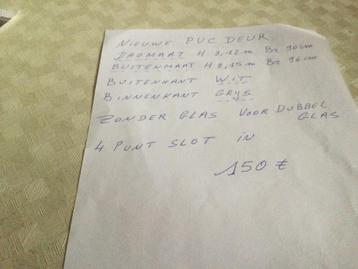 NIEUWE PVC DEUR
DAGMAAT H 2,12 m Br 90 cm
BUITENMAAT H 2,15 m Br 96 cm
BUITENKANT WIT
BINNENKANT GRYS
ZONDER GLAS VOOR DUBBEL
GLAS
4 PUNT SLOT IN
150 €